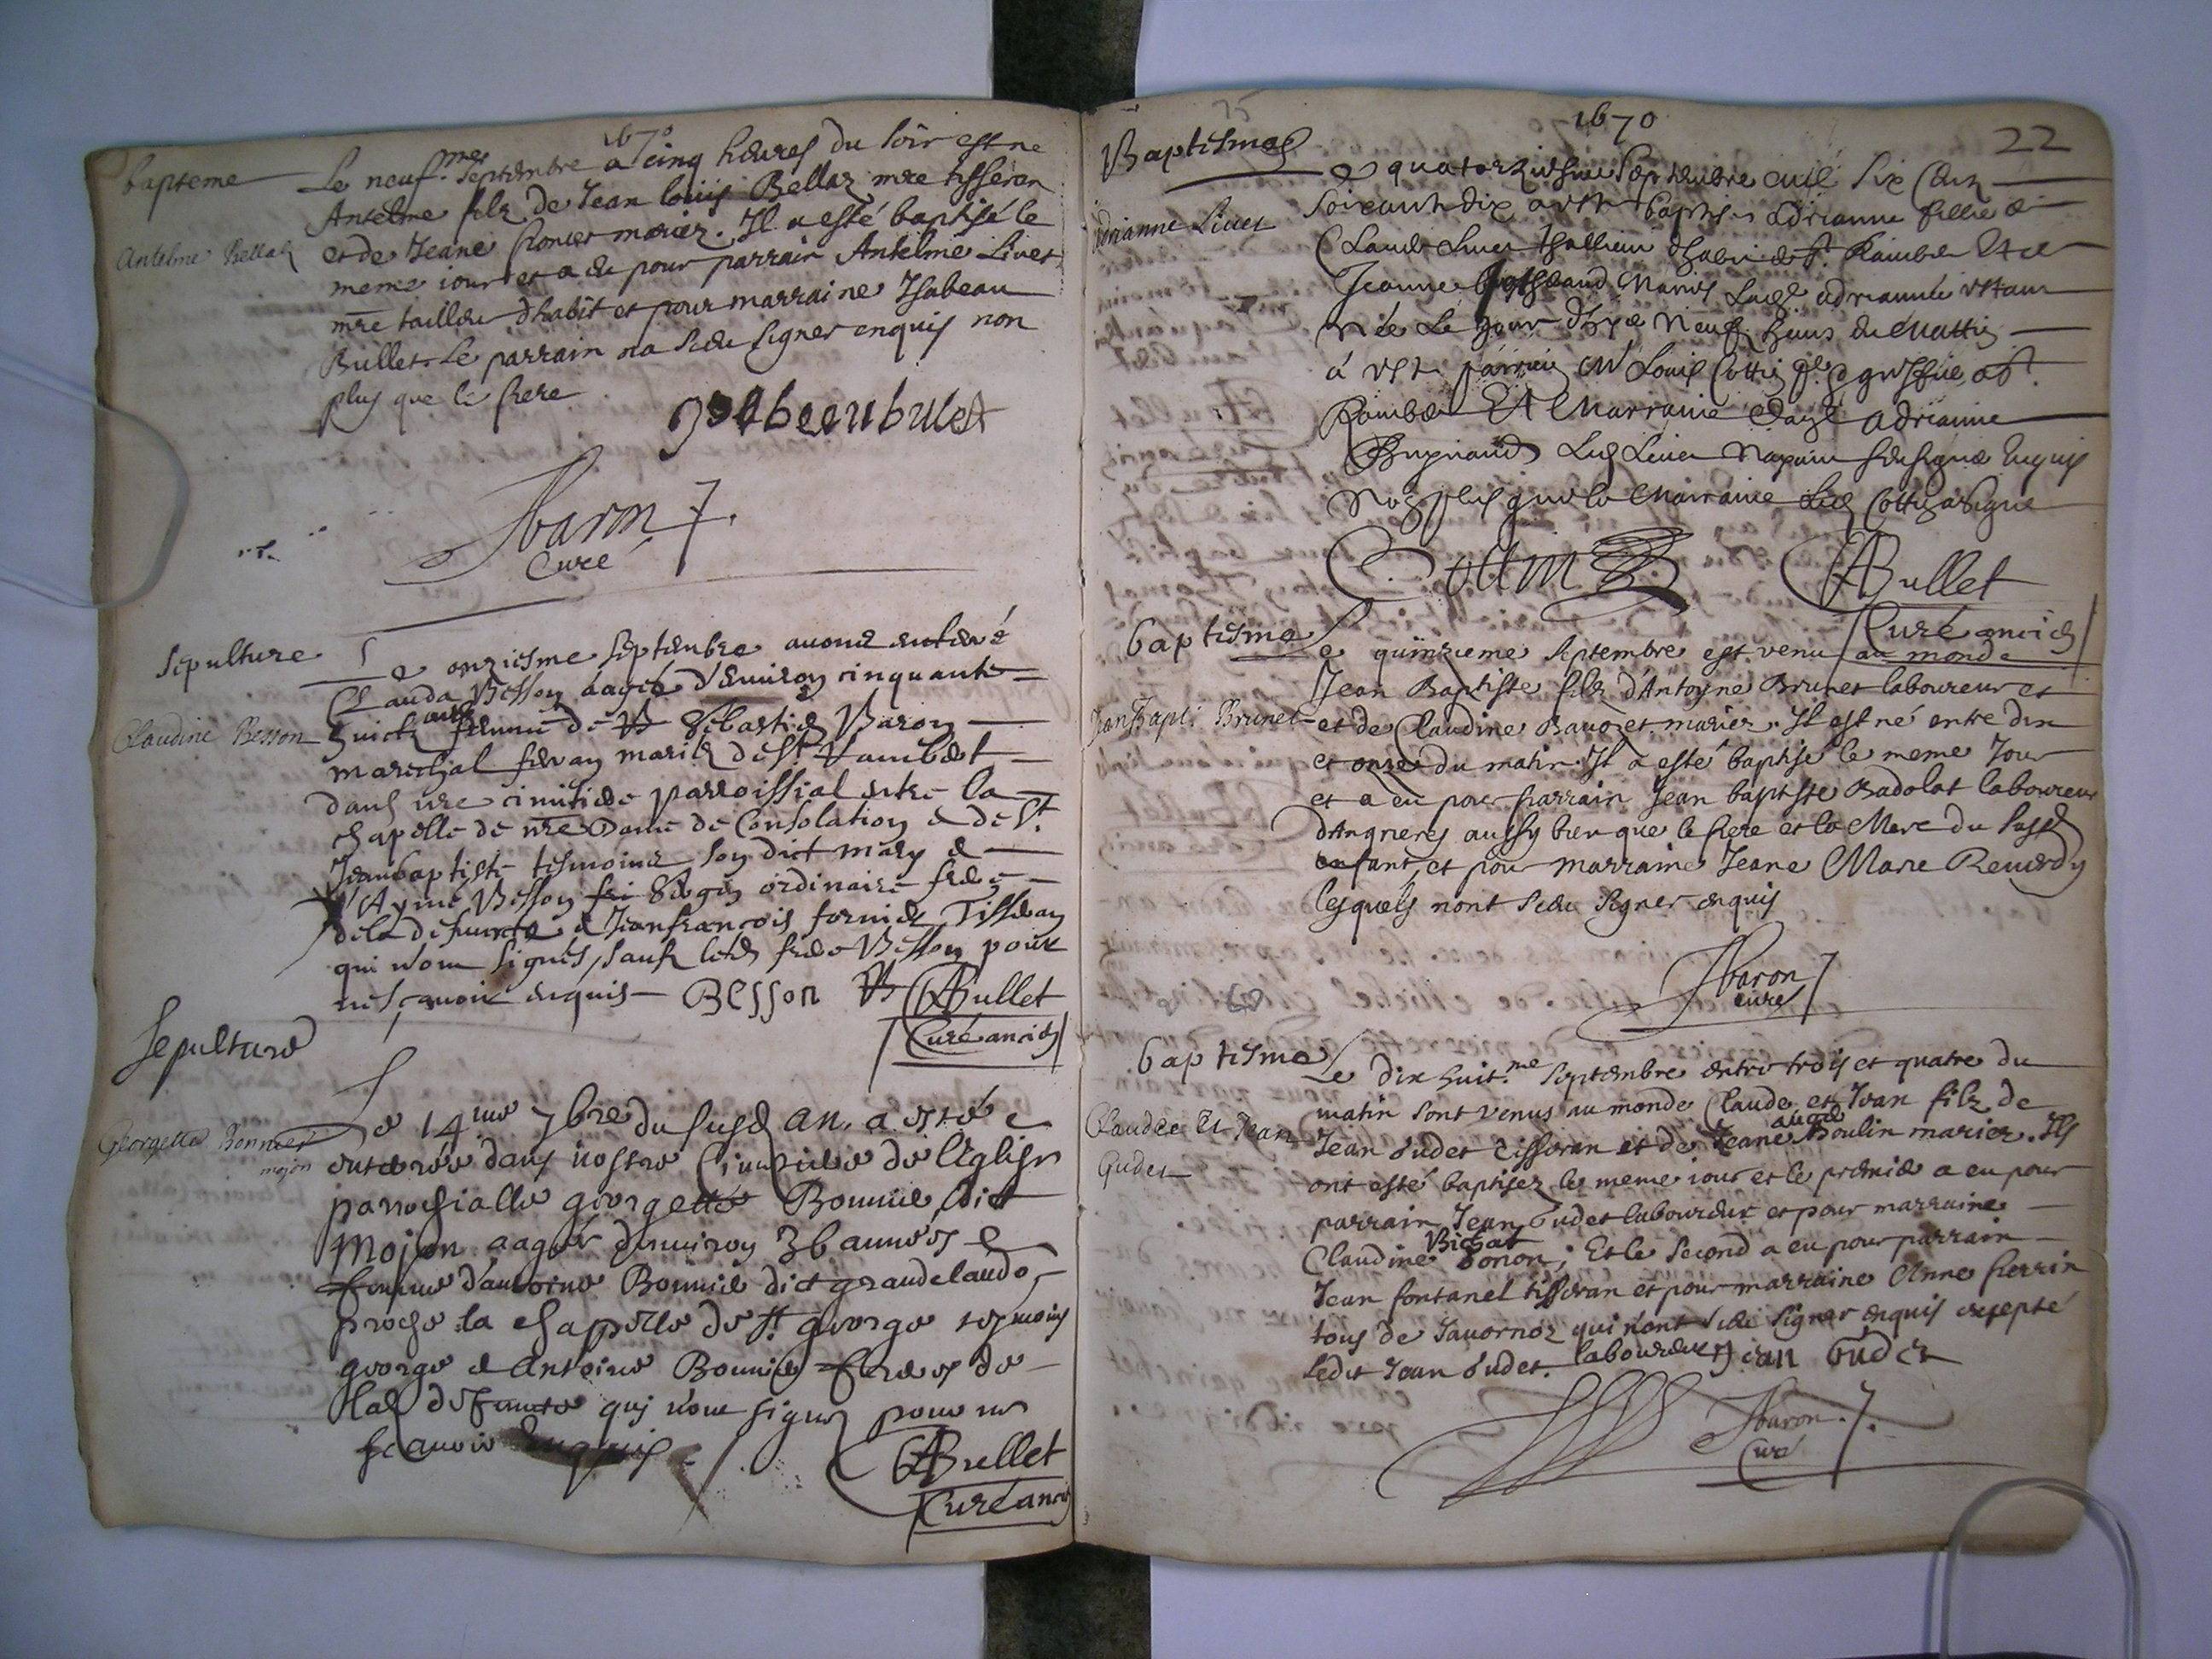 1670
bapteme
Le neuf.me Septembre a cinq heures du soir est ne
Antelme filz de Jean louis Bellaz mre tisseran
et de Jeane mariez. Il a esté baptisé le
Antelme Bellaz
meme iour et a eu pour parrain Antelme Livet
mre tailleur dhabit et pour marraine Isabeau
Bullet. Le parrain na sceu signer enquis non
plus que le pere
ysabeau bulet
Baron
Curé
Sepulture
Le onziesme septembre avons enterré
Clauda Besson aagée d'environ cinquante
huict ans femme de Sebastien Baron
Claudine Besson
mareschal de St Rambert
dans nre cimitiere parroissial entre la
chapelle de nre Dame de Consolation & de St
Jeanbaptiste tesmoins son dict mary &
Aymé Besson ordinaire frere
de la defuncte & Jeanfrancois fornier Tisseran
qui n'ont signés, sauf ledt frere Besson pour
ne scavoir enquis Besson B ABullet
Curé ancien
Sepulture
Le 14me 7bre du susd an. a esté
enterrée dans nostre Cimitiere de l'Eglise
Georgette Bonnier
mojon
parrochialle georgette Bonnier dict
Mojon aagée d'environ 36 années &
femme d'antoine Bonnier dict grandclaudo,
proche la chappelle de St george tesmoins
george & Antoine Bonnier freres de
lad defuncte qui n'ont signez pour ne
scavoir enquis
ABullet
Curé ancien
75
1670
22
Baptisme
Le quatorziesme Septembre mil six cens
soixante dix a este baptisée adrianne fillie de
adrianne Livet
Claude Livet dhabit de St Rambert Et de
Jeanne Mariés Ladte adrianne estant
née le jour d'hyer neuf heures du Mattin
à esté parrain Mr Louis Cottin St
Rambert Et Marraine adrianne
Led Livet N'ayant sceu signer Enquis
Non plus que la Marraine Led Cottin a signé
Cottin ABullet
Curé ancien
baptisme
Le quinzieme septembre est venu au monde
Jean Baptiste filz d'Antoyne Brunet laboureur et
Jean Bapt: Brunet
et de Claudine Bavozet mariez. Il est né entre dix
et onze du matin. Il a esté baptisé le meme Jour
et a eu pour parrain Jean baptiste Badolat laboureur
dAngrieres aussy bien que le pere et la Mere du susd
enfant, et pour marraine Jeane Marie Reverdy
lesquels nont sceu signer enquis
Baron
curé
baptisme
Le dix huit.me Septembre entre trois et quatre du
matin sont venus au monde Claude et Jean filz de
Claude Et Jean
Gudet
Jean Gudet tisseran et de Jeane Moulin mariez. Ils
ont esté baptisez le meme iour et le premier a eu pour
parrain Jean Gudet laboureur et pour marraine
Claudine Bichat; Et le second a eu pour parrain
Jean fontanel tisseran et pour marraine Anne perrin
tous de Javornoz qui n'ont sceu signer enquis excepté
ledit Jean Gudet. laboureur Jean Gudet
Baron
Curé